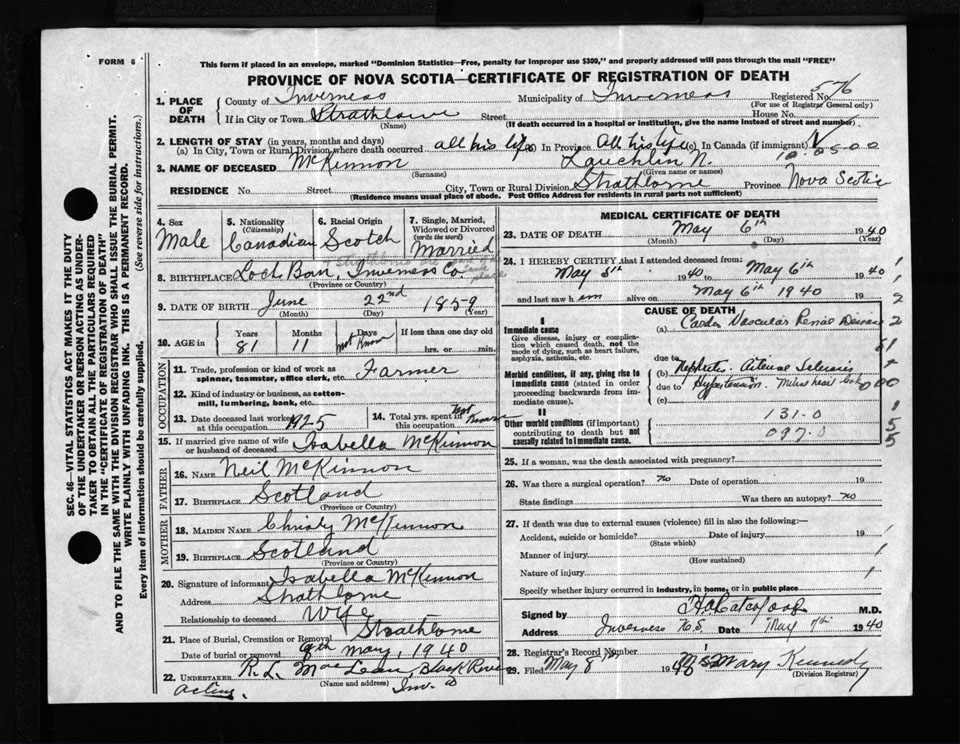 FORM 6
This form if placed in an envelope, marked "Dominion Statistics—Free, penalty for improper use $300," and properly addressed will pass through the mail "FREE"
PROVINCE OF NOVA SCOTIA—CERTIFICATE OF REGISTRATION OF DEATH
SEC. 46—VITAL STATISTICS ACT MAKES IT THE DUTY
OF THE UNDERTAKER OR PERSON ACTING AS UNDER-
TAKER TO OBTAIN ALL THE PARTICULARS REQUIRED
IN THE "CERTIFICATE OF REGISTRATION OF DEATH"
AND TO FILE THE SAME WITH THE DIVISION REGISTRAR WHO SHALL ISSUE THE BURIAL PERMIT.
WRITE PLAINLY WITH UNFADING INK. THIS IS A PERMANENT RECORD.
Every item of information should be carefully supplied. (See reverse side for instructions.)
1. PLACE OF DEATH
County of Inverness Municipality of Inverness Registered No. 576
(For use of Registrar General only)
If in City or Town Strathlorne Street House No.
(Name) (If death occurred in a hospital or institution, give the name instead of street and number)
2. LENGTH OF STAY (in years, months and days)
(a) In City, Town or Rural Division where death occurred all his life In Province All his life (c) In Canada (if immigrant)
3. NAME OF DECEASED McKinnon Lauchlin N.
(Surname) (Given name or names)
RESIDENCE No. Street City, Town or Rural Division Strathlorne Province Nova Scotia
(Residence means usual place of abode. Post Office Address for residents in rural parts not sufficient)
4. Sex Male
5. Nationality (Citizenship) Canadian
6. Racial Origin Scotch
7. Single, Married, Widowed or Divorced (write the word) Married
8. BIRTHPLACE Loch Ban, Inverness Co.
(Province or Country)
9. DATE OF BIRTH June 22nd 1859
(Month) (Day) (Year)
10. AGE in Years 81 Months 11 Days not Know If less than one day old hrs. or min.
OCCUPATION
11. Trade, profession or kind of work as spinner, teamster, office clerk, etc. Farmer
12. Kind of industry or business, as cotton-mill, lumbering, bank, etc.
13. Date deceased last worked at this occupation 1925
14. Total yrs. spent in this occupation not Know
15. If married give name of wife or husband of deceased Isabella McKinnon
FATHER
16. NAME Neil McKinnon
17. BIRTHPLACE Scotland
(Province or Country)
MOTHER
18. MAIDEN NAME Christy McKinnon
19. BIRTHPLACE Scotland
(Province or Country)
20. Signature of informant Isabella McKinnon
Address Strathlorne
Relationship to deceased Wife
21. Place of Burial, Cremation or Removal Strathlorne
Date of burial or removal 9th May, 1940
22. UNDERTAKER R. L. MacLean, Black River
(Name and address)
acting.
MEDICAL CERTIFICATE OF DEATH
23. DATE OF DEATH May 6th 1940
(Month) (Day) (Year)
24. I HEREBY CERTIFY that I attended deceased from:
May 5th 1940 to May 6th 1940
and last saw h im alive on May 6th 1940
CAUSE OF DEATH
I
Immediate cause
Give disease, injury or complication which caused death, not the mode of dying, such as heart failure, asphyxia, asthenia, etc.
(a) Cardio Vascular Renal Disease
due to
Morbid conditions, if any, giving rise to immediate cause (stated in order proceeding backwards from immediate cause).
(b) Nephritis
due to Hypertension.
(c)
II
Other morbid conditions (if important) contributing to death but not causally related to immediate cause.
131.0
097.0
25. If a woman, was the death associated with pregnancy?
26. Was there a surgical operation? no Date of operation 19
State findings Was there an autopsy? no
27. If death was due to external causes (violence) fill in also the following:—
Accident, suicide or homicide? Date of injury 19
(State which)
Manner of injury
(How sustained)
Nature of injury
Specify whether injury occurred in industry, in home, or in public place
Signed by M.D.
Address Inverness N.S. Date May 7th 1940
28. Registrar's Record Number
29. Filed May 8 1940 Mrs Mary Kennedy
(Division Registrar)